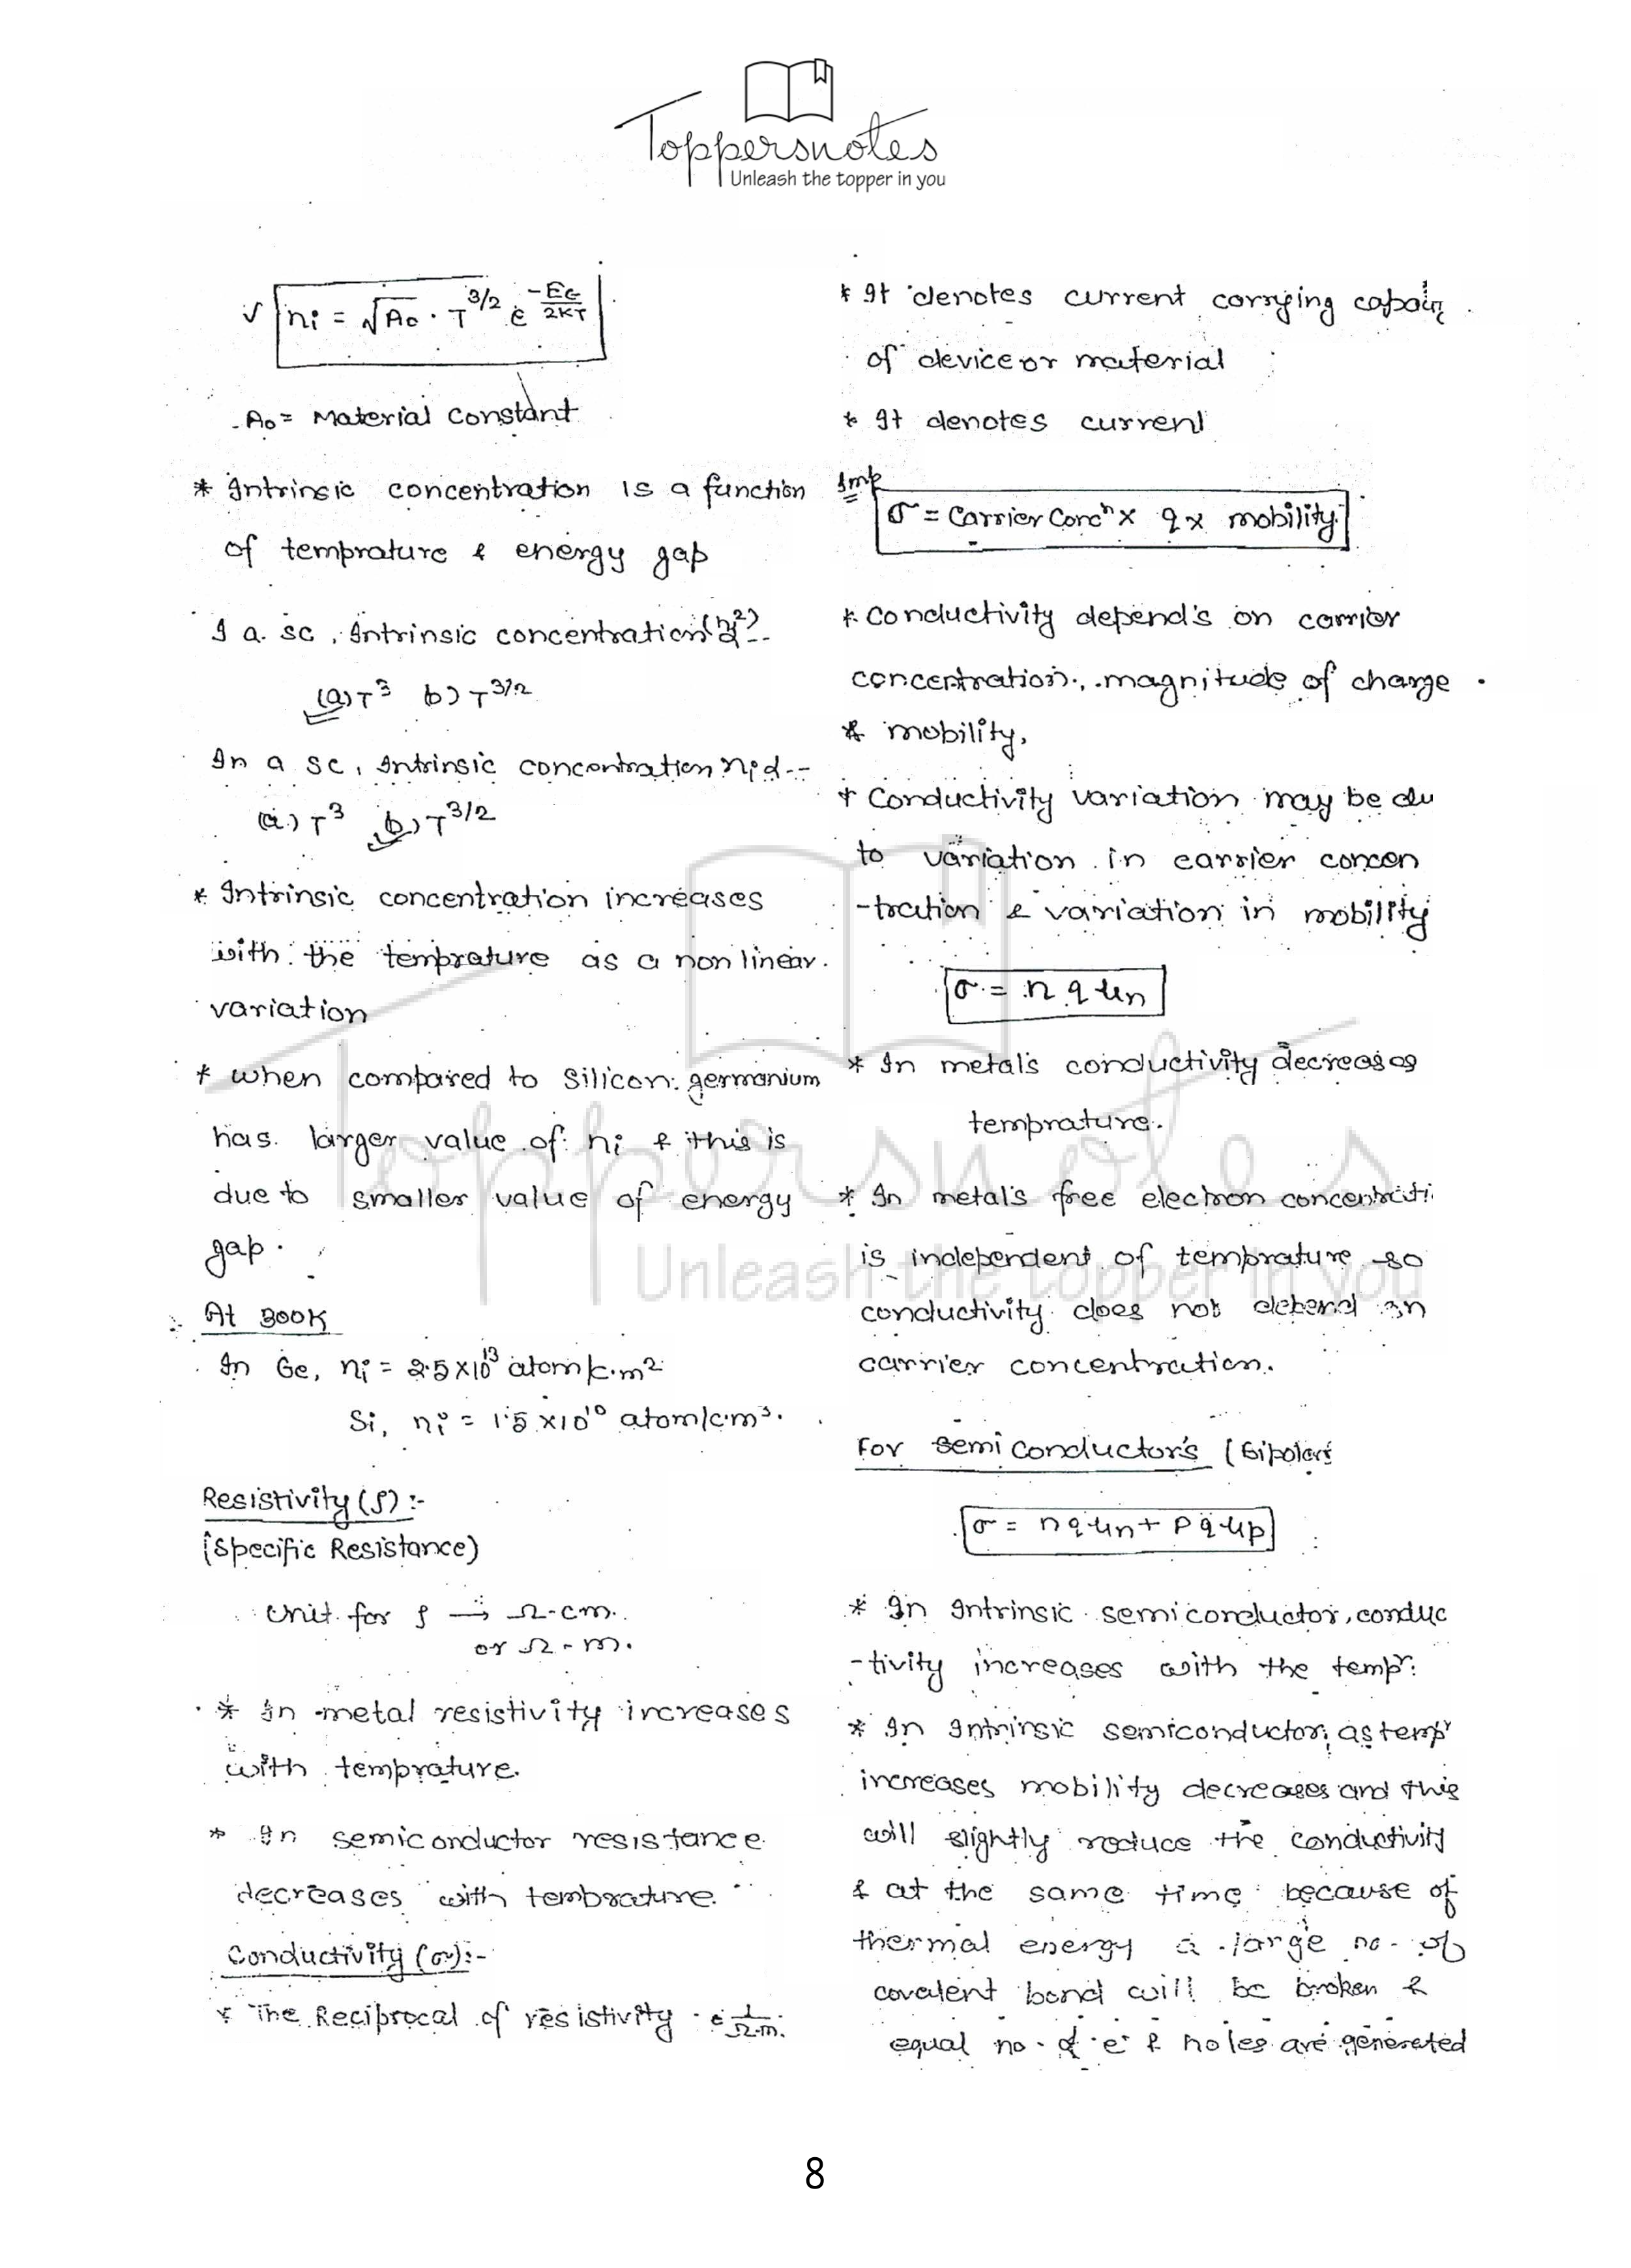 Toppersnotes
Unleash the topper in you
√ ni = √Ao · T^3/2 e^-EG/2KT
Ao = Material Constant
* Intrinsic concentration is a function
of temprature & energy gap
I a. sc, Intrinsic concentration (ni²) α --
(a) T³ b) T^3/2
In a sc, Intrinsic concentration ni α --
(a) T³ b) T^3/2
* Intrinsic concentration increases
with the temprature as a non linear
variation
* when compared to silicon germanium
has larger value of ni & this is
due to smaller value of energy
gap.
At 300K
In Ge, ni = 2.5×10^13 atom/c.m²
Si, ni = 1.5×10^10 atom/c.m³.
Resistivity (ρ) :-
(Specific Resistance)
Unit for ρ → Ω-cm.
or Ω-m.
* In metal resistivity increases
with temprature.
* In semiconductor resistance
decreases with temprature.
Conductivity (σ):-
* The Reciprocal of resistivity 1/Ω-m.
* It denotes current carrying
of device or material
* It denotes current
Imp
σ = Carrier Concⁿ × q × mobility
* Conductivity depend's on carrier
concentration, magnitude of charge
& mobility,
* Conductivity variation may be du
to variation in carrier concen
-tration & variation in mobility
σ = n q μn
* In metal's conductivity decreases
temprature.
* In metal's free electron concentrati
is independent of temprature so
conductivity does not depend on
carrier concentration.
For Semiconductor's (Bipolar)
σ = nqμn + pqμp
* In Intrinsic semiconductor, conduc
-tivity increases with the tempr.
* In Intrinsic semiconductor, as tempr
increases mobility decreases and this
will slightly reduce the conductivity
& at the same time because of
thermal energy a large no. of
covalent bond will be broken &
equal no. of e⁻ & holes are generated
Toppersnotes
Unleash the topper in you
8